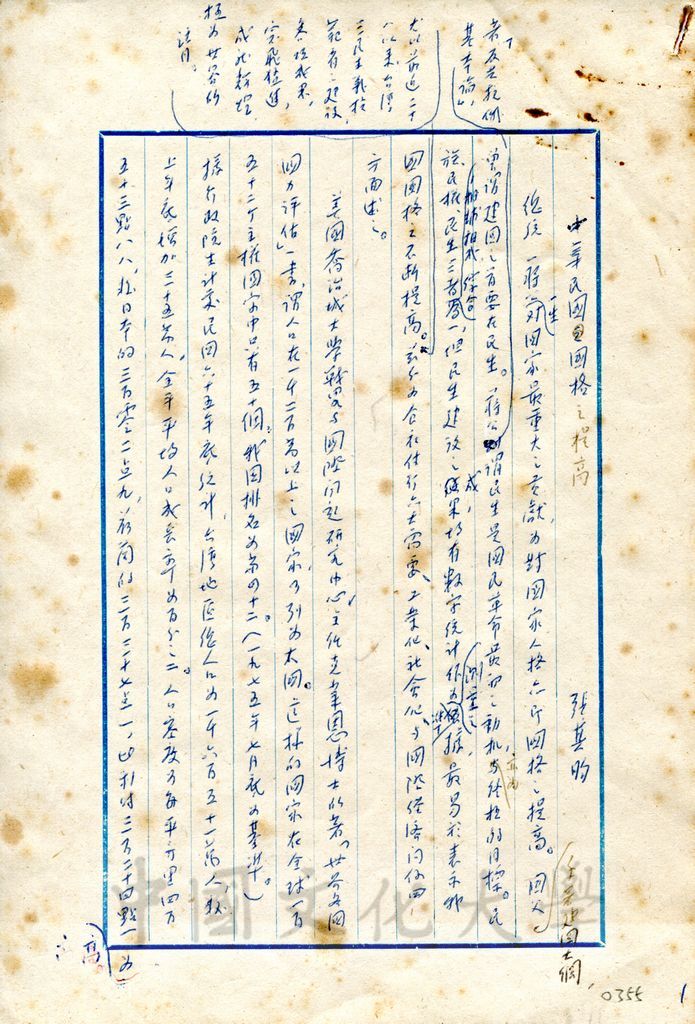 中華民國國格之提高
張其昀
總統　蔣公一生對國家最重大之貢獻，為對國家人格亦即國格之提高。國父
手著建國大綱，
曾謂建國之首要在民生。蔣公謂民生是國民革命最初之動機，亦為終極的目標。民
族民權民生三者為一，但民生建設之成果均有數字統計作為依據，最易於表示我
相輔相成，綜合
測量之
國國格之不斷提高。茲分為食衣住行六大需要、工業化、社會化、與國際經濟關係四
方面述之。
美國喬治城大學戰略與國際問題研究中心主任克萊恩博士所著「世界各國
國力評估」一書，謂人口在一千二百萬以上之國家，可列為大國。這樣的國家在全球一百
五十二個主權國家中只有五十個。我國排名為第四十二（一九七五年七月底為基準）。
據行政院主計處民國六十五年底統計，台灣地區總人口為一千六百五十一萬人，較
上年底增加三十五萬人，全年平均人口成長率為百分之二。人口密度為每平方公里四百
五十三點八八，較日本的三百零二點九，荷蘭的三百三十七點一，比利時三百二十四點一為
高。
若反共抗俄
基本論」，
尤以最近二十
以來台灣
三民主義模
範省之建設，
各項成果，
突飛猛進，
成就輝煌，
極為世界所
注目。
中國文化大學
0355
1